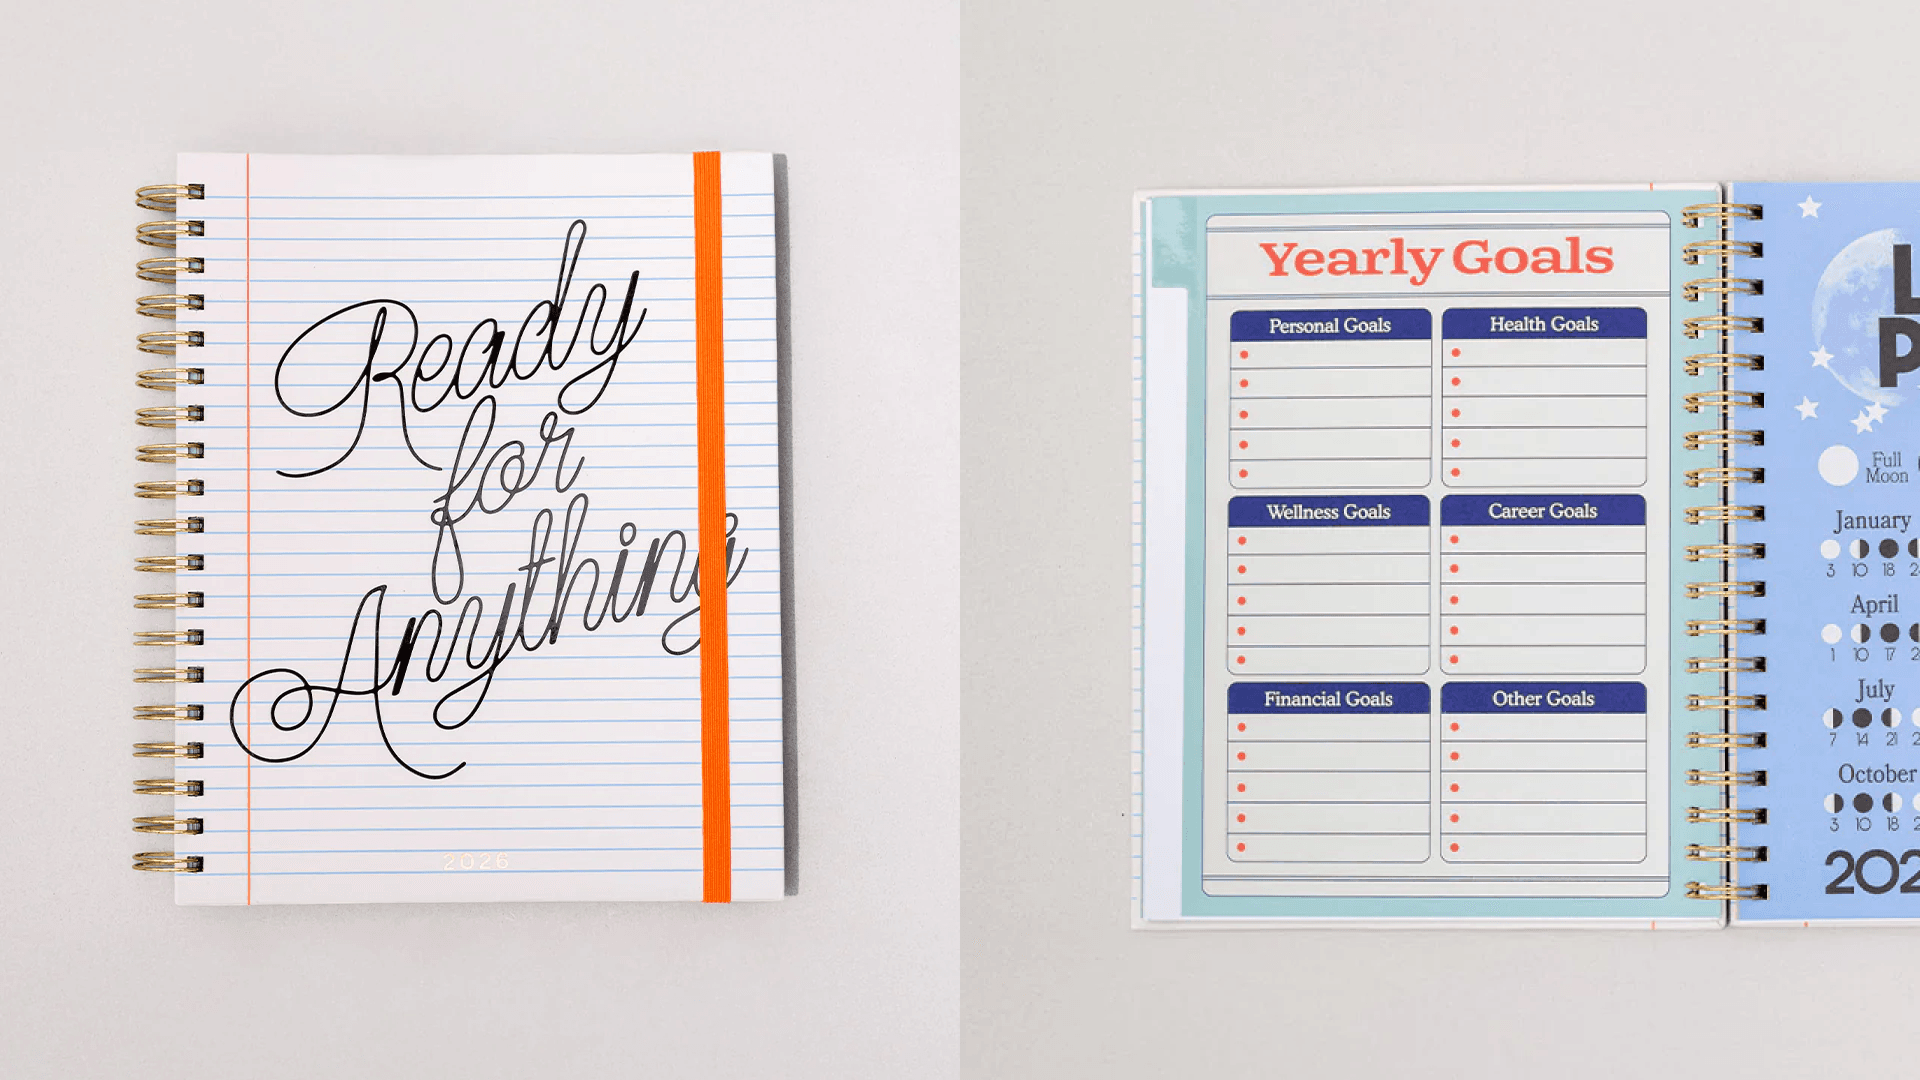 Ready
for
Anything
2026
Yearly Goals
Personal Goals
Health Goals
Wellness Goals
Career Goals
Financial Goals
Other Goals
Full
Moon
January
3 10 18
April
1 10 17
July
7 14 21
October
3 10 18